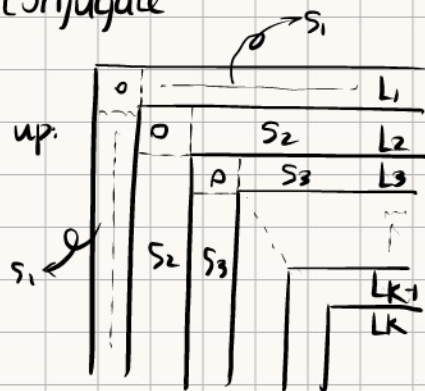 Conjugate
S₁
0 L₁
up: 0 S₂ L₂
0 S₃ L₃
S₁ S₂ S₃
Lₖ₋₁
Lₖ